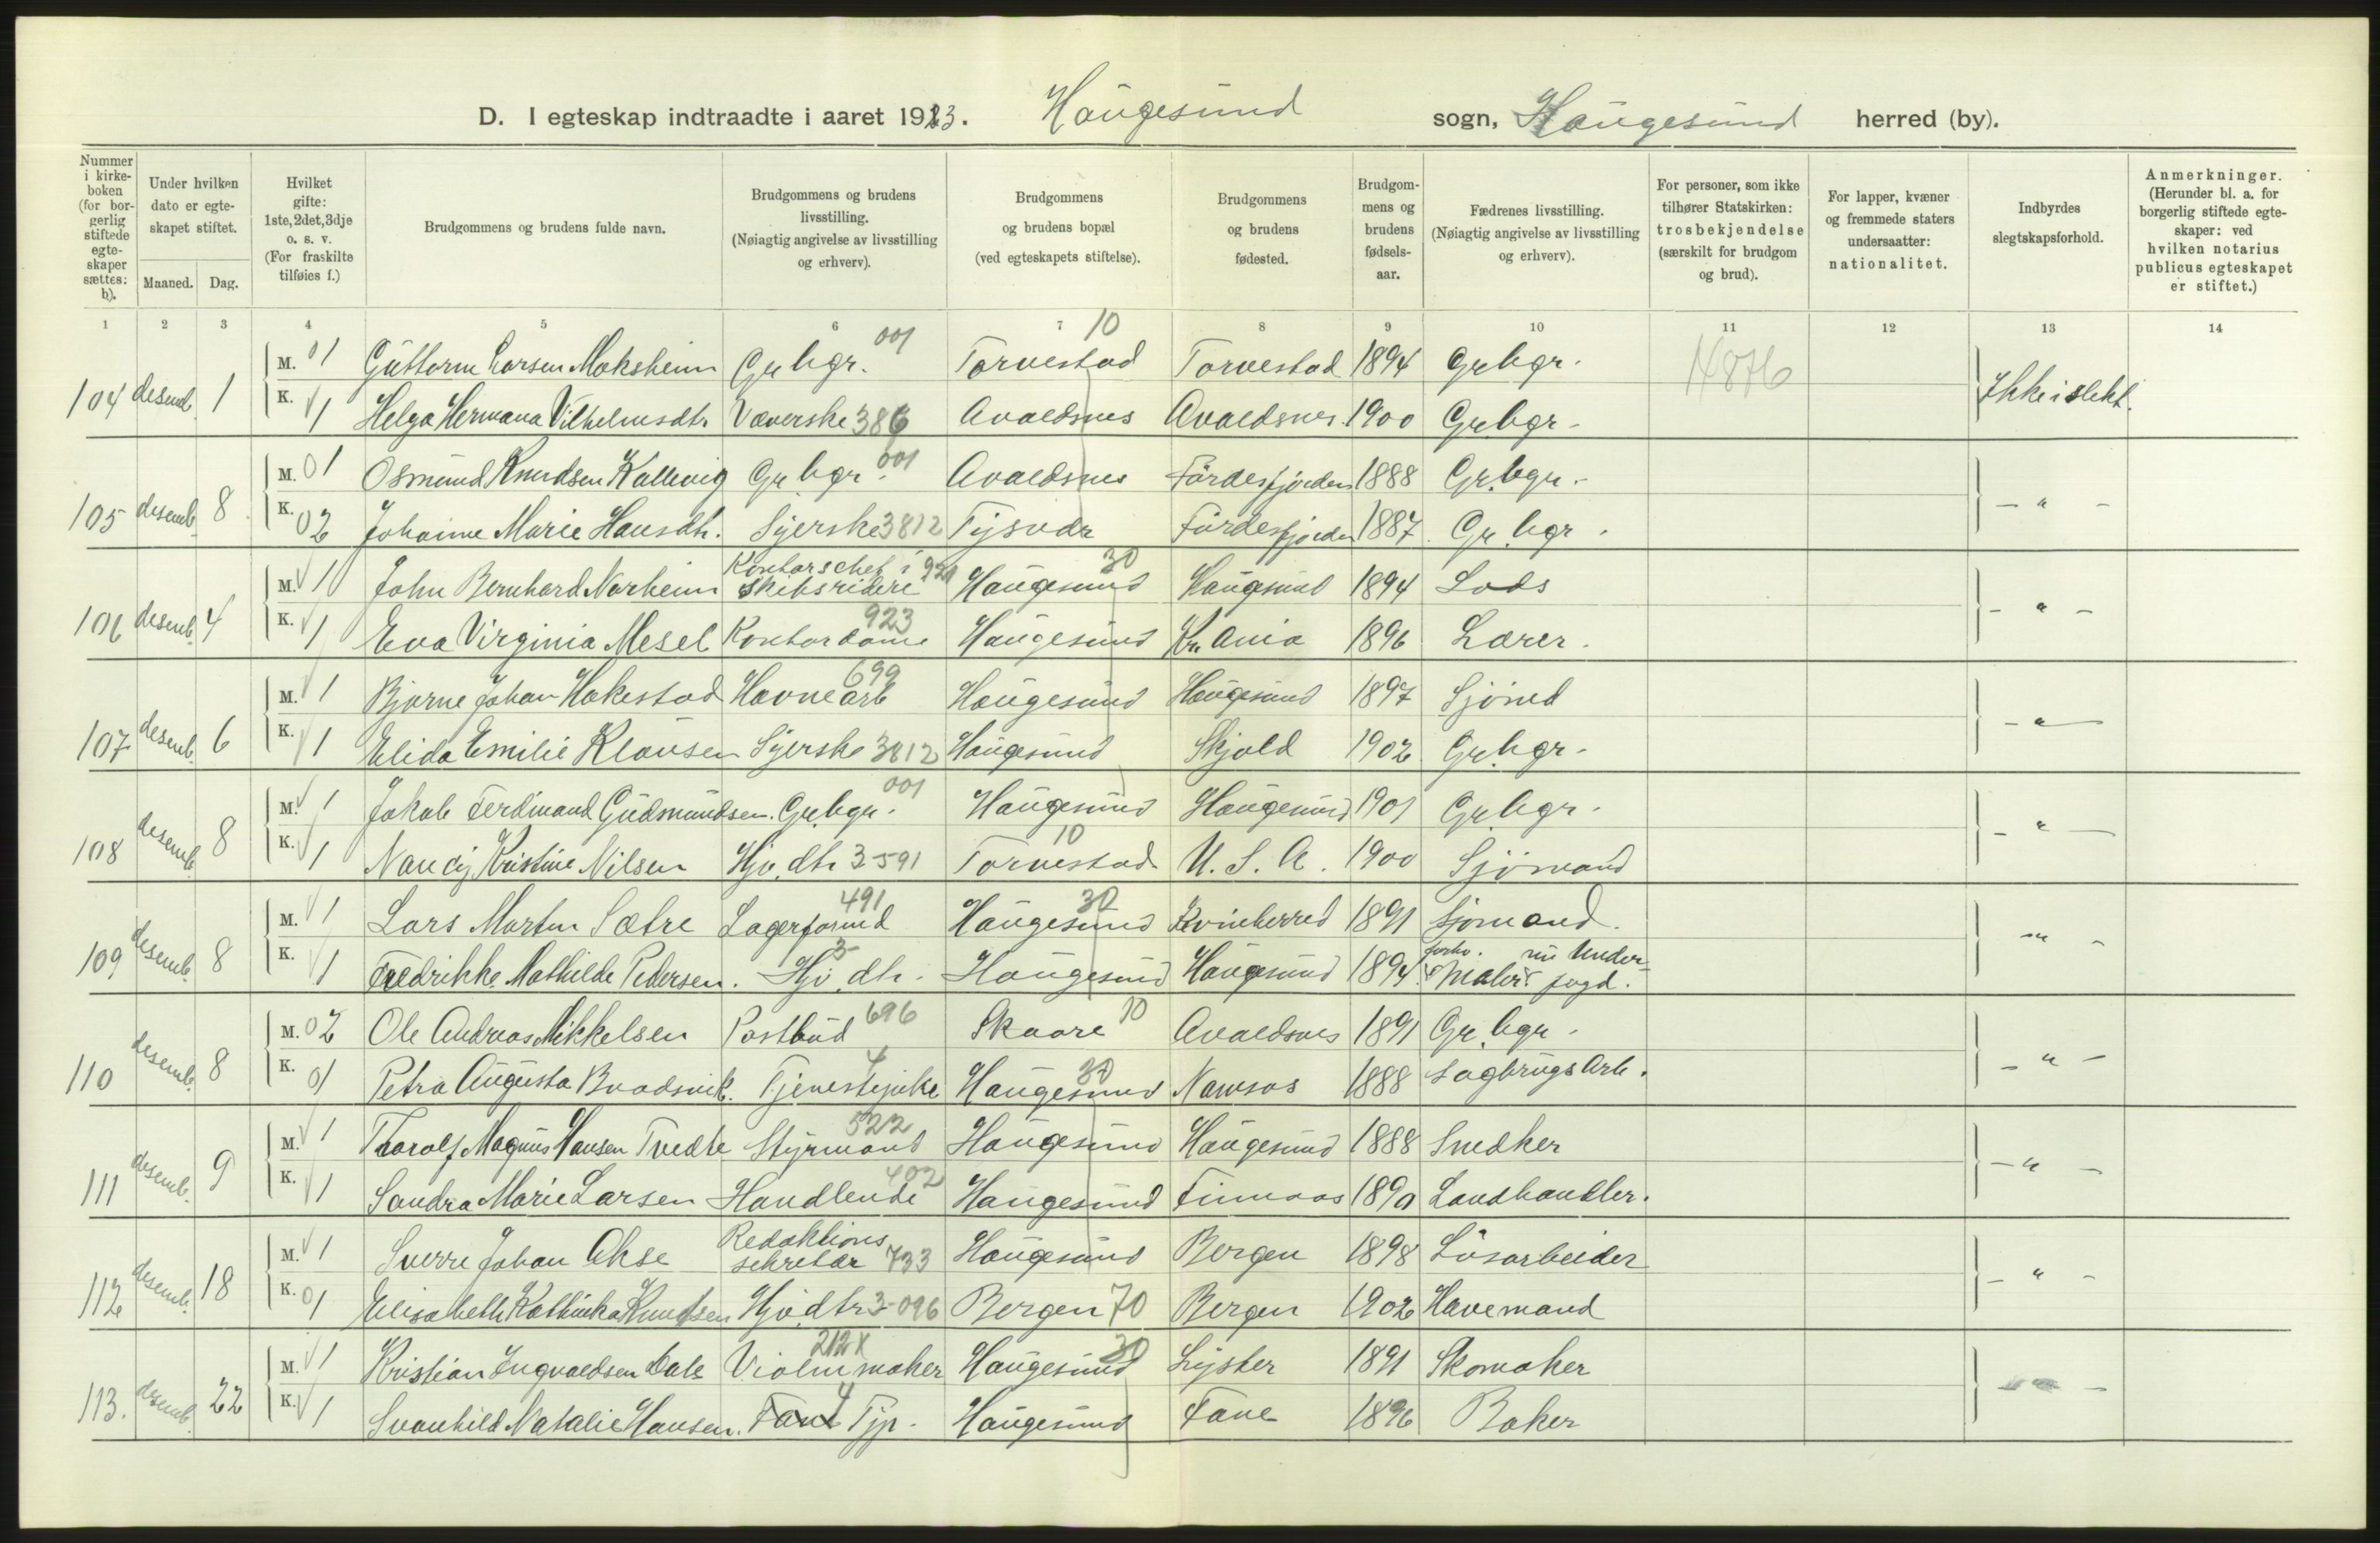 D. I egteskap indtraadte i aaret 1923. Haugesund sogn, Haugesund herred (by).
Nummer i kirke-boken (for bor-gerlig stiftede egte-skaper sættes: b).
Under hvilken dato er egte-skapet stiftet.
Maaned. Dag.
Hvilket gifte: 1ste, 2det, 3dje o. s. v. (For fraskilte tilføies f.)
Brudgommens og brudens fulde navn.
Brudgommens og brudens livsstilling. (Nøiagtig angivelse av livsstilling og erhverv).
Brudgommens og brudens bopæl (ved egteskapets stiftelse).
Brudgommens og brudens fødested.
Brudgom-mens og brudens fødsels-aar.
Fædrenes livsstilling. (Nøiagtig angivelse av livsstilling og erhverv).
For personer, som ikke tilhører Statskirken: trosbekjendelse (særskilt for brudgom og brud).
For lapper, kvæner og fremmede staters undersaatter: nationalitet.
Indbyrdes slegtskapsforhold.
Anmerkninger. (Herunder bl. a. for borgerlig stiftede egte-skaper: ved hvilken notarius publicus egteskapet er stiftet.)
1 2 3 4 5 6 7 8 9 10 11 12 13 14
104 desemb. 1 M. 01 Guttorm Larsen Moksheim Gr.bgr. 001 Torvestad 10 Torvestad 1894 Gr.bgr. Ikke i slekt.
K. 1 Helga Hermana Vilhelmsdtr. Væverske 386 Avaldsnes Avaldsnes 1900 Gr.bgr.
105 desemb. 8 M. 01 Osmund Knudsen Kallevig Gr.bgr. 001 Avaldsnes Førdesfjorden 1888 Gr.bgr. - " -
K. 02 Johanne Marie Hansdtr. Syerske 3812 Tysvær Førdesfjorden 1887 Gr.bgr.
106 desemb. 4 M. 1 John Bernhard Norheim Kontorschef i skibsrideri 921 Haugesund 30 Haugesund 1894 Lods - " -
K. 1 Eva Virginia Mesel Kontordame 923 Haugesund Kr.ania 1896 Lærer.
107 desemb. 6 M. 1 Bjarne Johan Hakestad Havnearb 699 Haugesund Haugesund 1897 Sjømd - " -
K. 1 Elida Emilie Klausen Syerske 3812 Haugesund Skjold 1902 Gr.bgr.
108 desemb. 8 M. 1 Jakob Ferdinand Gudmundsen. Gr.bgr. 001 Haugesund Haugesund 1901 Gr.bgr. - " -
K. 1 Nancy Kristine Nilsen Hjv. dtr 3-591 Torvestad 10 U. S. A. 1900 Sjømand
109 desemb. 8 M. 1 Lars Martin Sætre Lagerformd 491 Haugesund 30 Kvinherred 1891 Sjømand. - " -
K. 1 Fredrikke Mathilde Pedersen. Hjv. dtr. 3- Haugesund Haugesund 1894 Maler nu Under-fogd.
110 desemb. 8 M. 02 Ole Andreas Mikkelsen Postbud 696 Skaare 10 Avaldsnes 1891 Gr.bgr. - " -
K. 01 Petra Augusta Bradsvik. Tjenestepike 4 Haugesund 30 Namsos 1888 Sagbrugsarb.
111 desemb. 9 M. 1 Thoralf Magnus Hansen Tvedte Styrmand 522 Haugesund Haugesund 1888 Snedker - " -
K. 1 Sandra Marie Larsen Handlende 402 Haugesund Finnaas 1890 Landhandler.
112 desemb. 18 M. 1 Sverre Johan Akse Redaktions sekretær 733 Haugesund Bergen 1898 Løsarbeider - " -
K. 01 Elisabeth Kathinka Knudsen Hjv.dtr 3-096 Bergen 70 Bergen 1902 Havemand
113. desemb. 22 M. 1 Kristian Ingvaldsen Dale Violinmaker 212x Haugesund 30 Lyster 1891 Skomaker - " -
K. 1 Svanhild Natalie Hansen. Tjp. 4 Haugesund Fane 1896 Baker